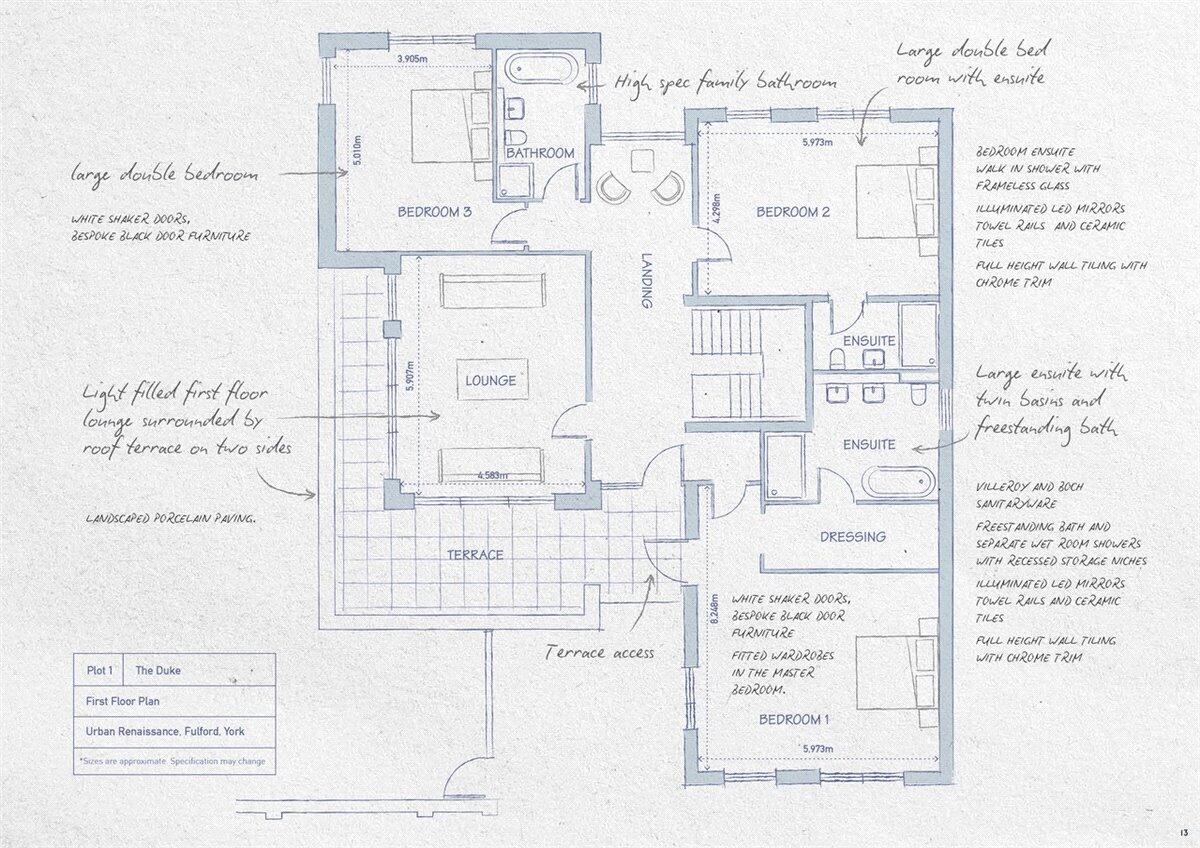 3.905m
High spec family bathroom
Large double bed
room with ensuite
5.010m
BATHROOM
5.973m
large double bedroom
BEDROOM 3
WHITE SHAKER DOORS,
BESPOKE BLACK DOOR FURNITURE
4.298m
BEDROOM 2
BEDROOM ENSUITE
WALK IN SHOWER WITH
FRAMELESS GLASS
ILLUMINATED LED MIRRORS
TOWEL RAILS AND CERAMIC
TILES
FULL HEIGHT WALL TILING WITH
CHROME TRIM
LANDING
ENSUITE
Light filled first floor
lounge surrounded by
roof terrace on two sides
5.907m
LOUNGE
4.583m
LANDSCAPED PORCELAIN PAVING.
ENSUITE
Large ensuite with
twin basins and
freestanding bath
VILLEROY AND BOCH
SANITARYWARE
FREESTANDING BATH AND
SEPARATE WET ROOM SHOWERS
WITH RECESSED STORAGE NICHES
ILLUMINATED LED MIRRORS
TOWEL RAILS AND CERAMIC
TILES
FULL HEIGHT WALL TILING
WITH CHROME TRIM
TERRACE
DRESSING
Terrace access
8.248m
WHITE SHAKER DOORS,
BESPOKE BLACK DOOR
FURNITURE
FITTED WARDROBES
IN THE MASTER
BEDROOM.
BEDROOM 1
5.973m
Plot 1 The Duke
First Floor Plan
Urban Renaissance, Fulford, York
*Sizes are approximate. Specification may change
13